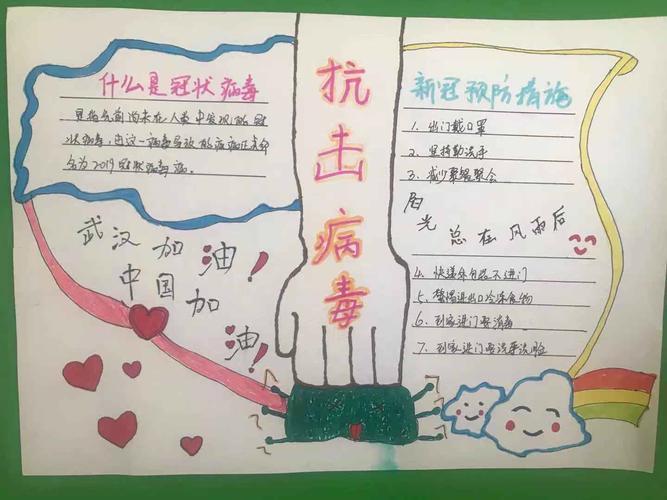 什么是冠状病毒
是指以前尚未在人类中发现的冠
状病毒，由这一病毒导致的疾病正式命
名为2019冠状病毒病。
武汉加油！
中国加油！
抗击病毒
新冠预防措施
1、出门戴口罩
2、坚持勤洗手
3、减少聚餐聚会
阳光总在风雨后
4、快递外包装不进门
5、警惕进出口冷冻食物
6、到家进门要消毒
7、到家进门要洗手洗脸